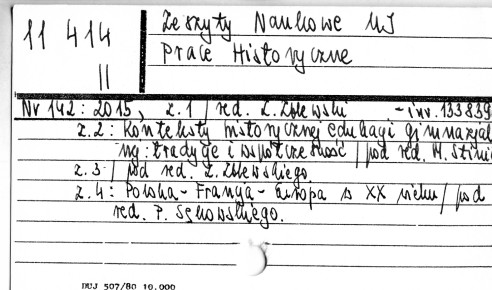 11 414
II
Zeszyty Naukowe UJ
Prace Historyczne
Nr 142 : 2015, z.1 / red. Z. Zblewski - inw. 133839
z.2 : Konteksty historycznej edukacji gimnazjal
nej : tradycje i współczesność / pod red. M. Stini
z.3 / pod red. Z. Zblewskiego.
z.4 : Polska - Francja - Europa w XX wieku / pod
red. P. Sękowskiego.
DUJ 507/80 10.000